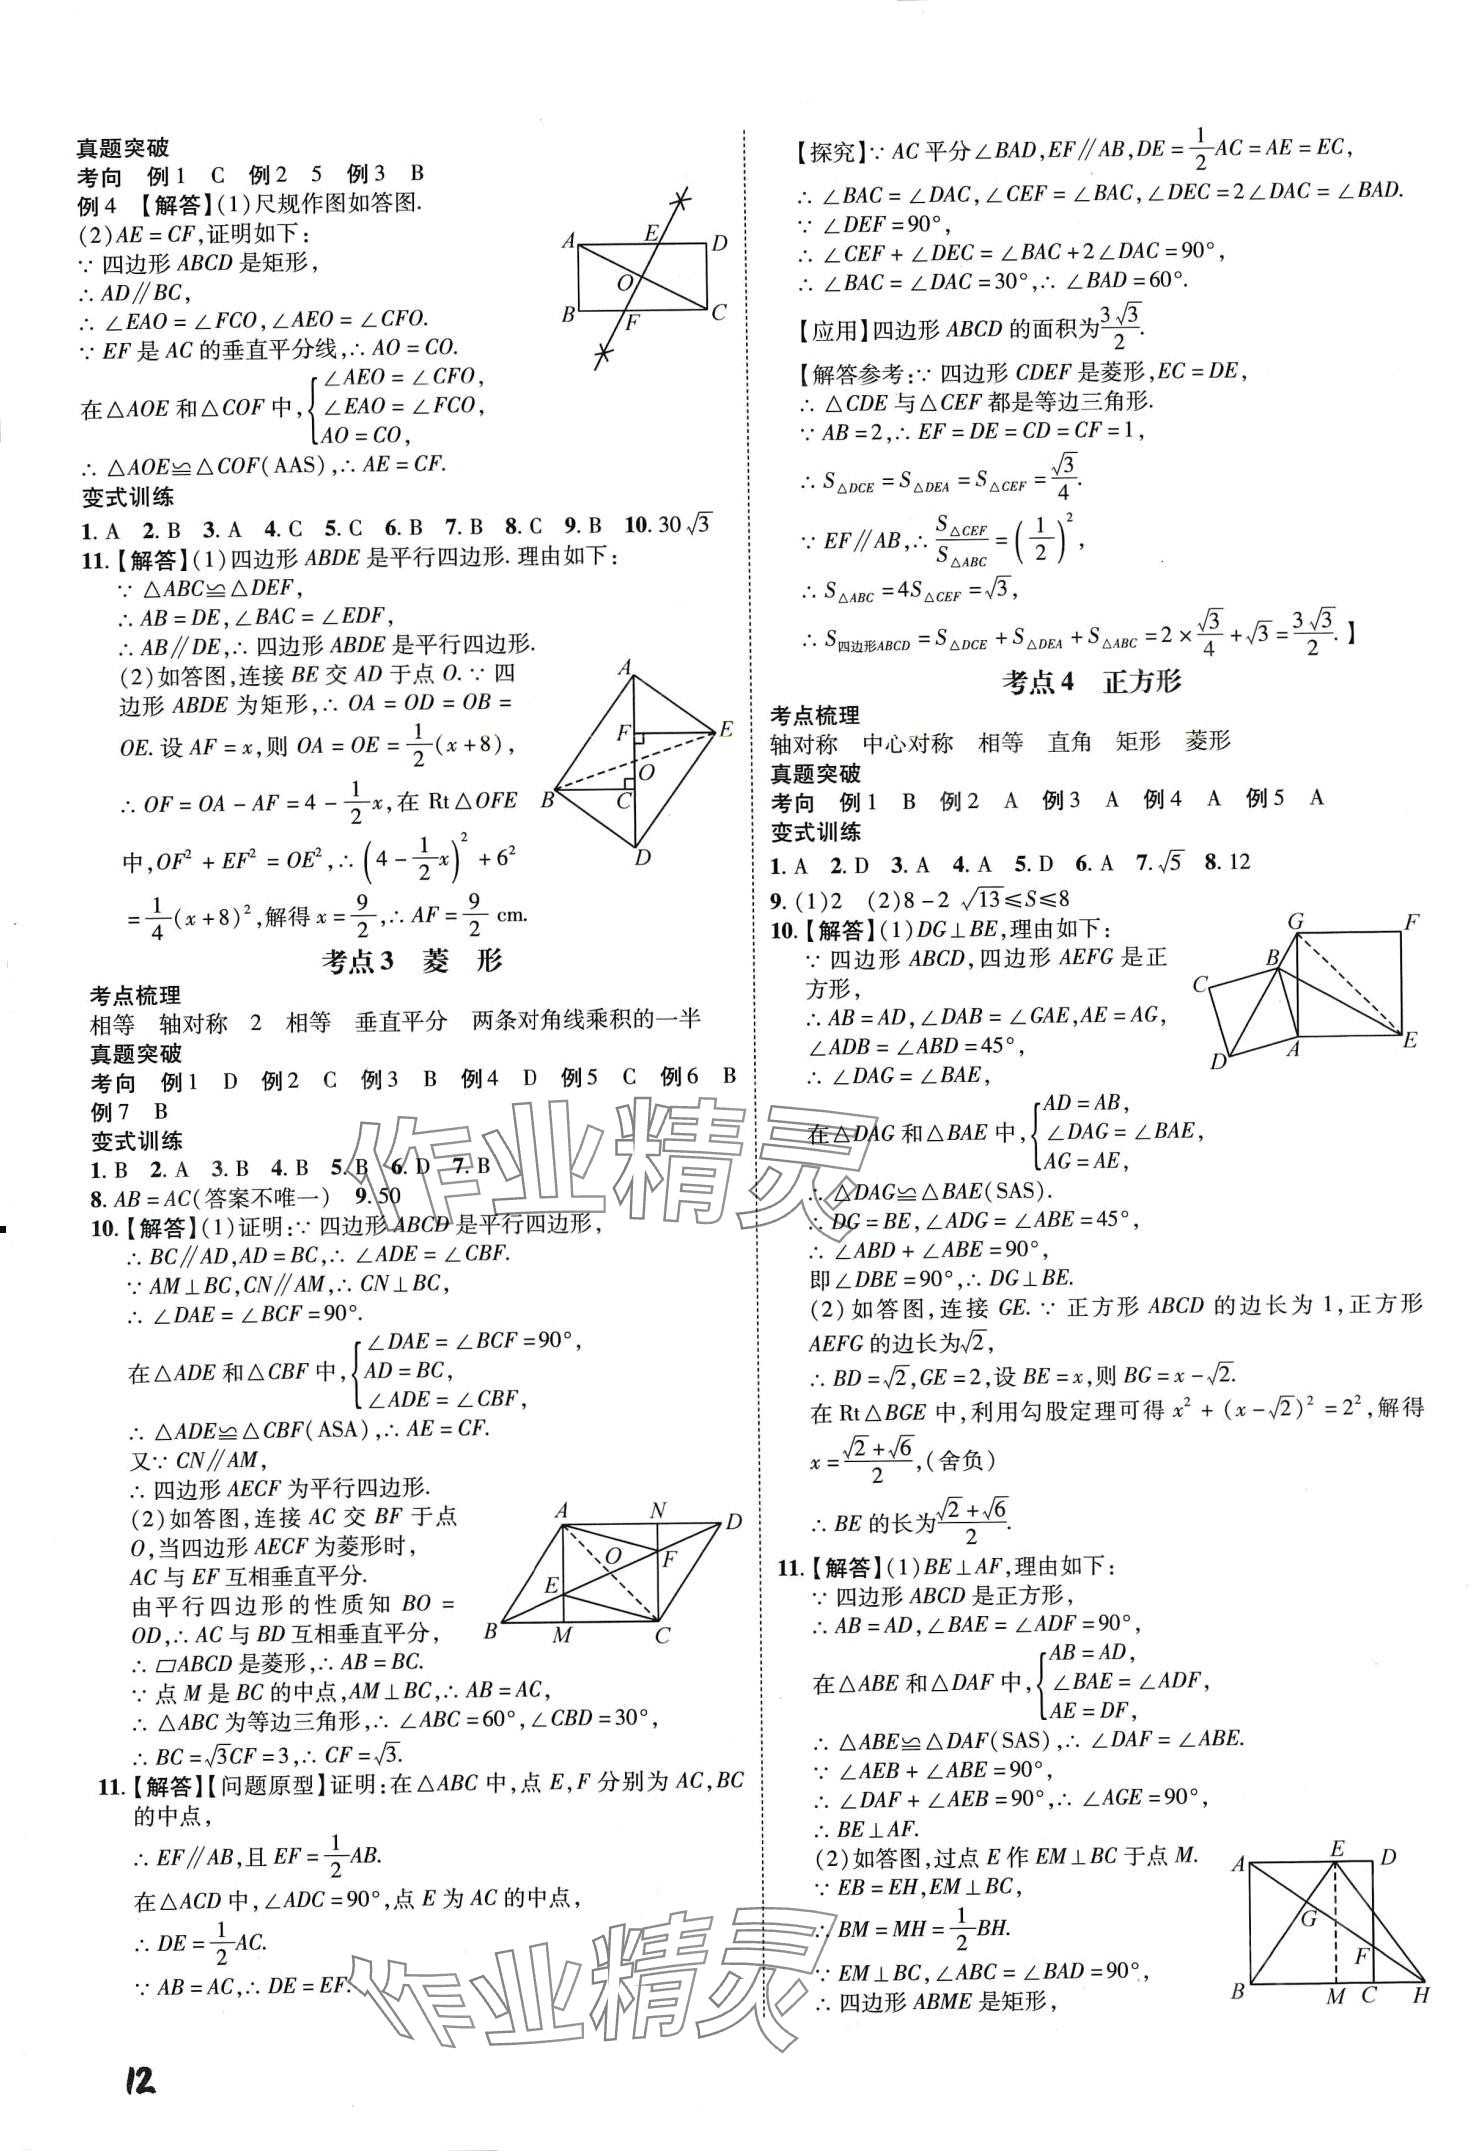 真题突破
考向　例1　C　例2　5　例3　B
例4　【解答】(1)尺规作图如答图.
(2)AE=CF,证明如下：
∵四边形ABCD是矩形，
∴AD∥BC，
∴∠EAO=∠FCO,∠AEO=∠CFO.
∵EF是AC的垂直平分线,∴AO=CO.
在△AOE和△COF中,{∠AEO=∠CFO, ∠EAO=∠FCO, AO=CO,
∴△AOE≌△COF(AAS),∴AE=CF.
A E D
O
B F C
变式训练
1. A　2. B　3. A　4. C　5. C　6. B　7. B　8. C　9. B　10. 30√3
11.【解答】(1)四边形ABDE是平行四边形.理由如下：
∵△ABC≌△DEF,
∴AB=DE,∠BAC=∠EDF,
∴AB∥DE,∴四边形ABDE是平行四边形.
(2)如答图,连接BE交AD于点O.∵四
边形ABDE为矩形,∴OA=OD=OB=
OE.设AF=x,则OA=OE=1/2(x+8),
∴OF=OA-AF=4-1/2x,在Rt△OFE
中,OF²+EF²=OE²,∴(4-1/2x)²+6²
=1/4(x+8)²,解得x=9/2,∴AF=9/2 cm.
A
F E
O
B C
D
考点3　菱　形
考点梳理
相等　轴对称　2　相等　垂直平分　两条对角线乘积的一半
真题突破
考向　例1　D　例2　C　例3　B　例4　D　例5　C　例6　B
例7　B
变式训练
1. B　2. A　3. B　4. B　5. B　6. D　7. B
8. AB=AC(答案不唯一)　9. 50
10.【解答】(1)证明:∵四边形ABCD是平行四边形，
∴BC∥AD,AD=BC,∴∠ADE=∠CBF.
∵AM⊥BC,CN∥AM,∴CN⊥BC,
∴∠DAE=∠BCF=90°.
在△ADE和△CBF中,{∠DAE=∠BCF=90°, AD=BC, ∠ADE=∠CBF,
∴△ADE≌△CBF(ASA),∴AE=CF.
又∵CN∥AM,
∴四边形AECF为平行四边形.
(2)如答图,连接AC交BF于点
O,当四边形AECF为菱形时，
AC与EF互相垂直平分.
由平行四边形的性质知BO=
OD,∴AC与BD互相垂直平分，
∴▱ABCD是菱形,∴AB=BC.
∵点M是BC的中点,AM⊥BC,∴AB=AC,
∴△ABC为等边三角形,∴∠ABC=60°,∠CBD=30°,
∴BC=√3CF=3,∴CF=√3.
A N D
O F
E
B M C
11.【解答】【问题原型】证明:在△ABC中,点E,F分别为AC,BC
的中点，
∴EF∥AB,且EF=1/2AB.
在△ACD中,∠ADC=90°,点E为AC的中点，
∴DE=1/2AC.
∵AB=AC,∴DE=EF.
12
【探究】∵AC平分∠BAD,EF∥AB,DE=1/2AC=AE=EC,
∴∠BAC=∠DAC,∠CEF=∠BAC,∠DEC=2∠DAC=∠BAD.
∵∠DEF=90°,
∴∠CEF+∠DEC=∠BAC+2∠DAC=90°,
∴∠BAC=∠DAC=30°,∴∠BAD=60°.
【应用】四边形ABCD的面积为3√3/2.
【解答参考:∵四边形CDEF是菱形,EC=DE,
∴△CDE与△CEF都是等边三角形.
∵AB=2,∴EF=DE=CD=CF=1,
∴S△DCE=S△DEA=S△CEF=√3/4.
∵EF∥AB,∴S△CEF/S△ABC=(1/2)²,
∴S△ABC=4S△CEF=√3,
∴S四边形ABCD=S△DCE+S△DEA+S△ABC=2×√3/4+√3=3√3/2.】
考点4　正方形
考点梳理
轴对称　中心对称　相等　直角　矩形　菱形
真题突破
考向　例1　B　例2　A　例3　A　例4　A　例5　A
变式训练
1. A　2. D　3. A　4. A　5. D　6. A　7. √5　8. 12
9. (1)2　(2)8-2√13≤S≤8
10.【解答】(1)DG⊥BE,理由如下：
∵四边形ABCD,四边形AEFG是正
方形，
∴AB=AD,∠DAB=∠GAE,AE=AG,
∠ADB=∠ABD=45°,
∴∠DAG=∠BAE,
在△DAG和△BAE中,{AD=AB, ∠DAG=∠BAE, AG=AE,
∴△DAG≌△BAE(SAS).
∴DG=BE,∠ADG=∠ABE=45°,
∴∠ABD+∠ABE=90°,
即∠DBE=90°,∴DG⊥BE.
(2)如答图,连接GE.∵正方形ABCD的边长为1,正方形
AEFG的边长为√2,
∴BD=√2,GE=2,设BE=x,则BG=x-√2.
在Rt△BGE中,利用勾股定理可得x²+(x-√2)²=2²,解得
x=(√2+√6)/2,(舍负)
∴BE的长为(√2+√6)/2.
G F
B
C
D A E
11.【解答】(1)BE⊥AF,理由如下：
∵四边形ABCD是正方形，
∴AB=AD,∠BAE=∠ADF=90°,
在△ABE和△DAF中,{AB=AD, ∠BAE=∠ADF, AE=DF,
∴△ABE≌△DAF(SAS),∴∠DAF=∠ABE.
∵∠AEB+∠ABE=90°,
∴∠DAF+∠AEB=90°,∴∠AGE=90°,
∴BE⊥AF.
(2)如答图,过点E作EM⊥BC于点M.
∵EB=EH,EM⊥BC,
∴BM=MH=1/2BH.
∵EM⊥BC,∠ABC=∠BAD=90°,
∴四边形ABME是矩形，
A E D
G
F
B M C H
作业精灵
作业精灵